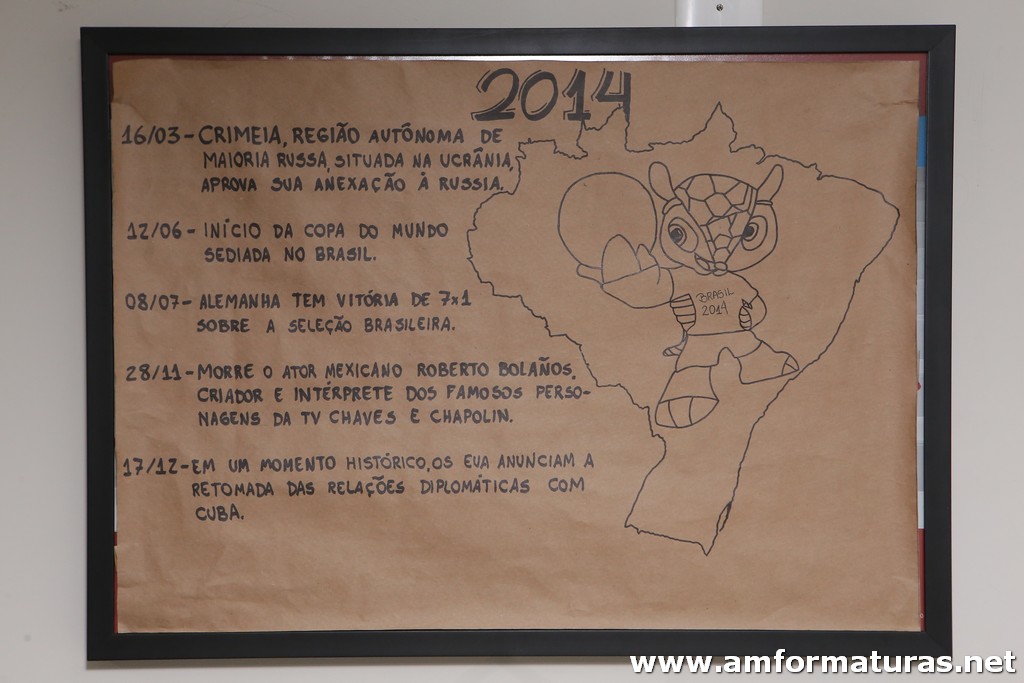 2014
16/03 - CRIMEIA, REGIÃO AUTÔNOMA DE
MAIORIA RUSSA, SITUADA NA UCRÂNIA,
APROVA SUA ANEXAÇÃO À RUSSIA.
12/06 - INÍCIO DA COPA DO MUNDO
SEDIADA NO BRASIL.
08/07 - ALEMANHA TEM VITÓRIA DE 7x1
SOBRE A SELEÇÃO BRASILEIRA.
28/11 - MORRE O ATOR MEXICANO ROBERTO BOLAÑOS,
CRIADOR E INTÉRPRETE DOS FAMOSOS PERSO-
NAGENS DA TV CHAVES E CHAPOLIN.
17/12 - EM UM MOMENTO HISTÓRICO, OS EUA ANUNCIAM A
RETOMADA DAS RELAÇÕES DIPLOMÁTICAS COM
CUBA.
BRASIL
2014
www.amformaturas.net